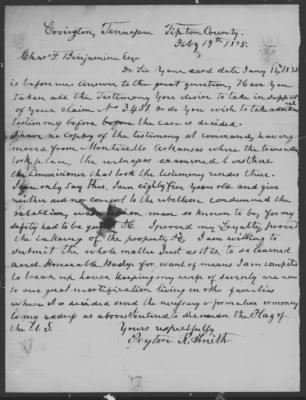 Covington, Tennessee Tipton County.
Feby 19th 1875.
Chas F Benjamin Esq
Dr Sir Your card date Jany 14, 1875
is before me Answer to the great question, Have you
taken all the Testimony you desire to take in support
of your claim No or do you wish to take additional
testimony before before the case is decided.
I have no copy of the testimony at command, having
moved from Monticello Arkansas where the
took place, the witnesses examined &
the Commissioner that took the testimony
I can only Say this. I am eighty five years old and gave
neither aid nor comfort to the rebellion condemned the
rebellion, was union man so known to be, for my
safety had to be &c I proved my Loyalty, proved
the taking of the property &c, I am willing to
submit the whole matter Just as it is, to so learned
and Honorable Body. for want of means I am compelled
to break up house keeping my wife of seventy are now
to our great mortification living in other families
where it is decided send the necessary information or money
to my address as above I intend to die under the Flag of
the U. S. Yours respectfully
Peyton R. Smith